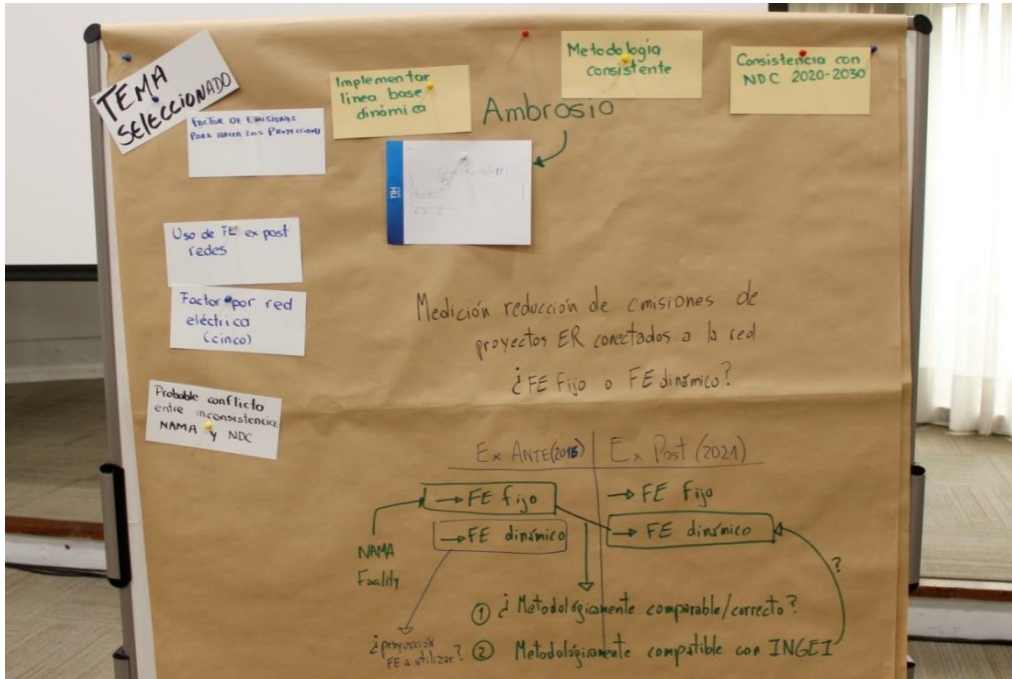 TEMA
SELECCIONADO
FACTOR DE EMISIONES
PARA HACER LAS PROYECCIONES
Implementar
línea base
dinámica
Metodología
consistente
Consistencia con
NDC 2020-2030
Ambrosio
Uso de FE ex post
redes
Factor por red
eléctrica
(cinco)
Probable conflicto
entre inconsistencia
NAMA y NDC
Medición reducción de emisiones de
proyectos ER conectados a la red
¿FE Fijo o FE dinámico?
Ex ANTE(2015) Ex Post (2021)
→ FE fijo → FE Fijo
→ FE dinámico → FE dinámico
NAMA
Facility
?
① ¿Metodológicamente comparable/correcto?
② Metodológicamente compatible con INGEI
¿proyección
FE a utilizar?